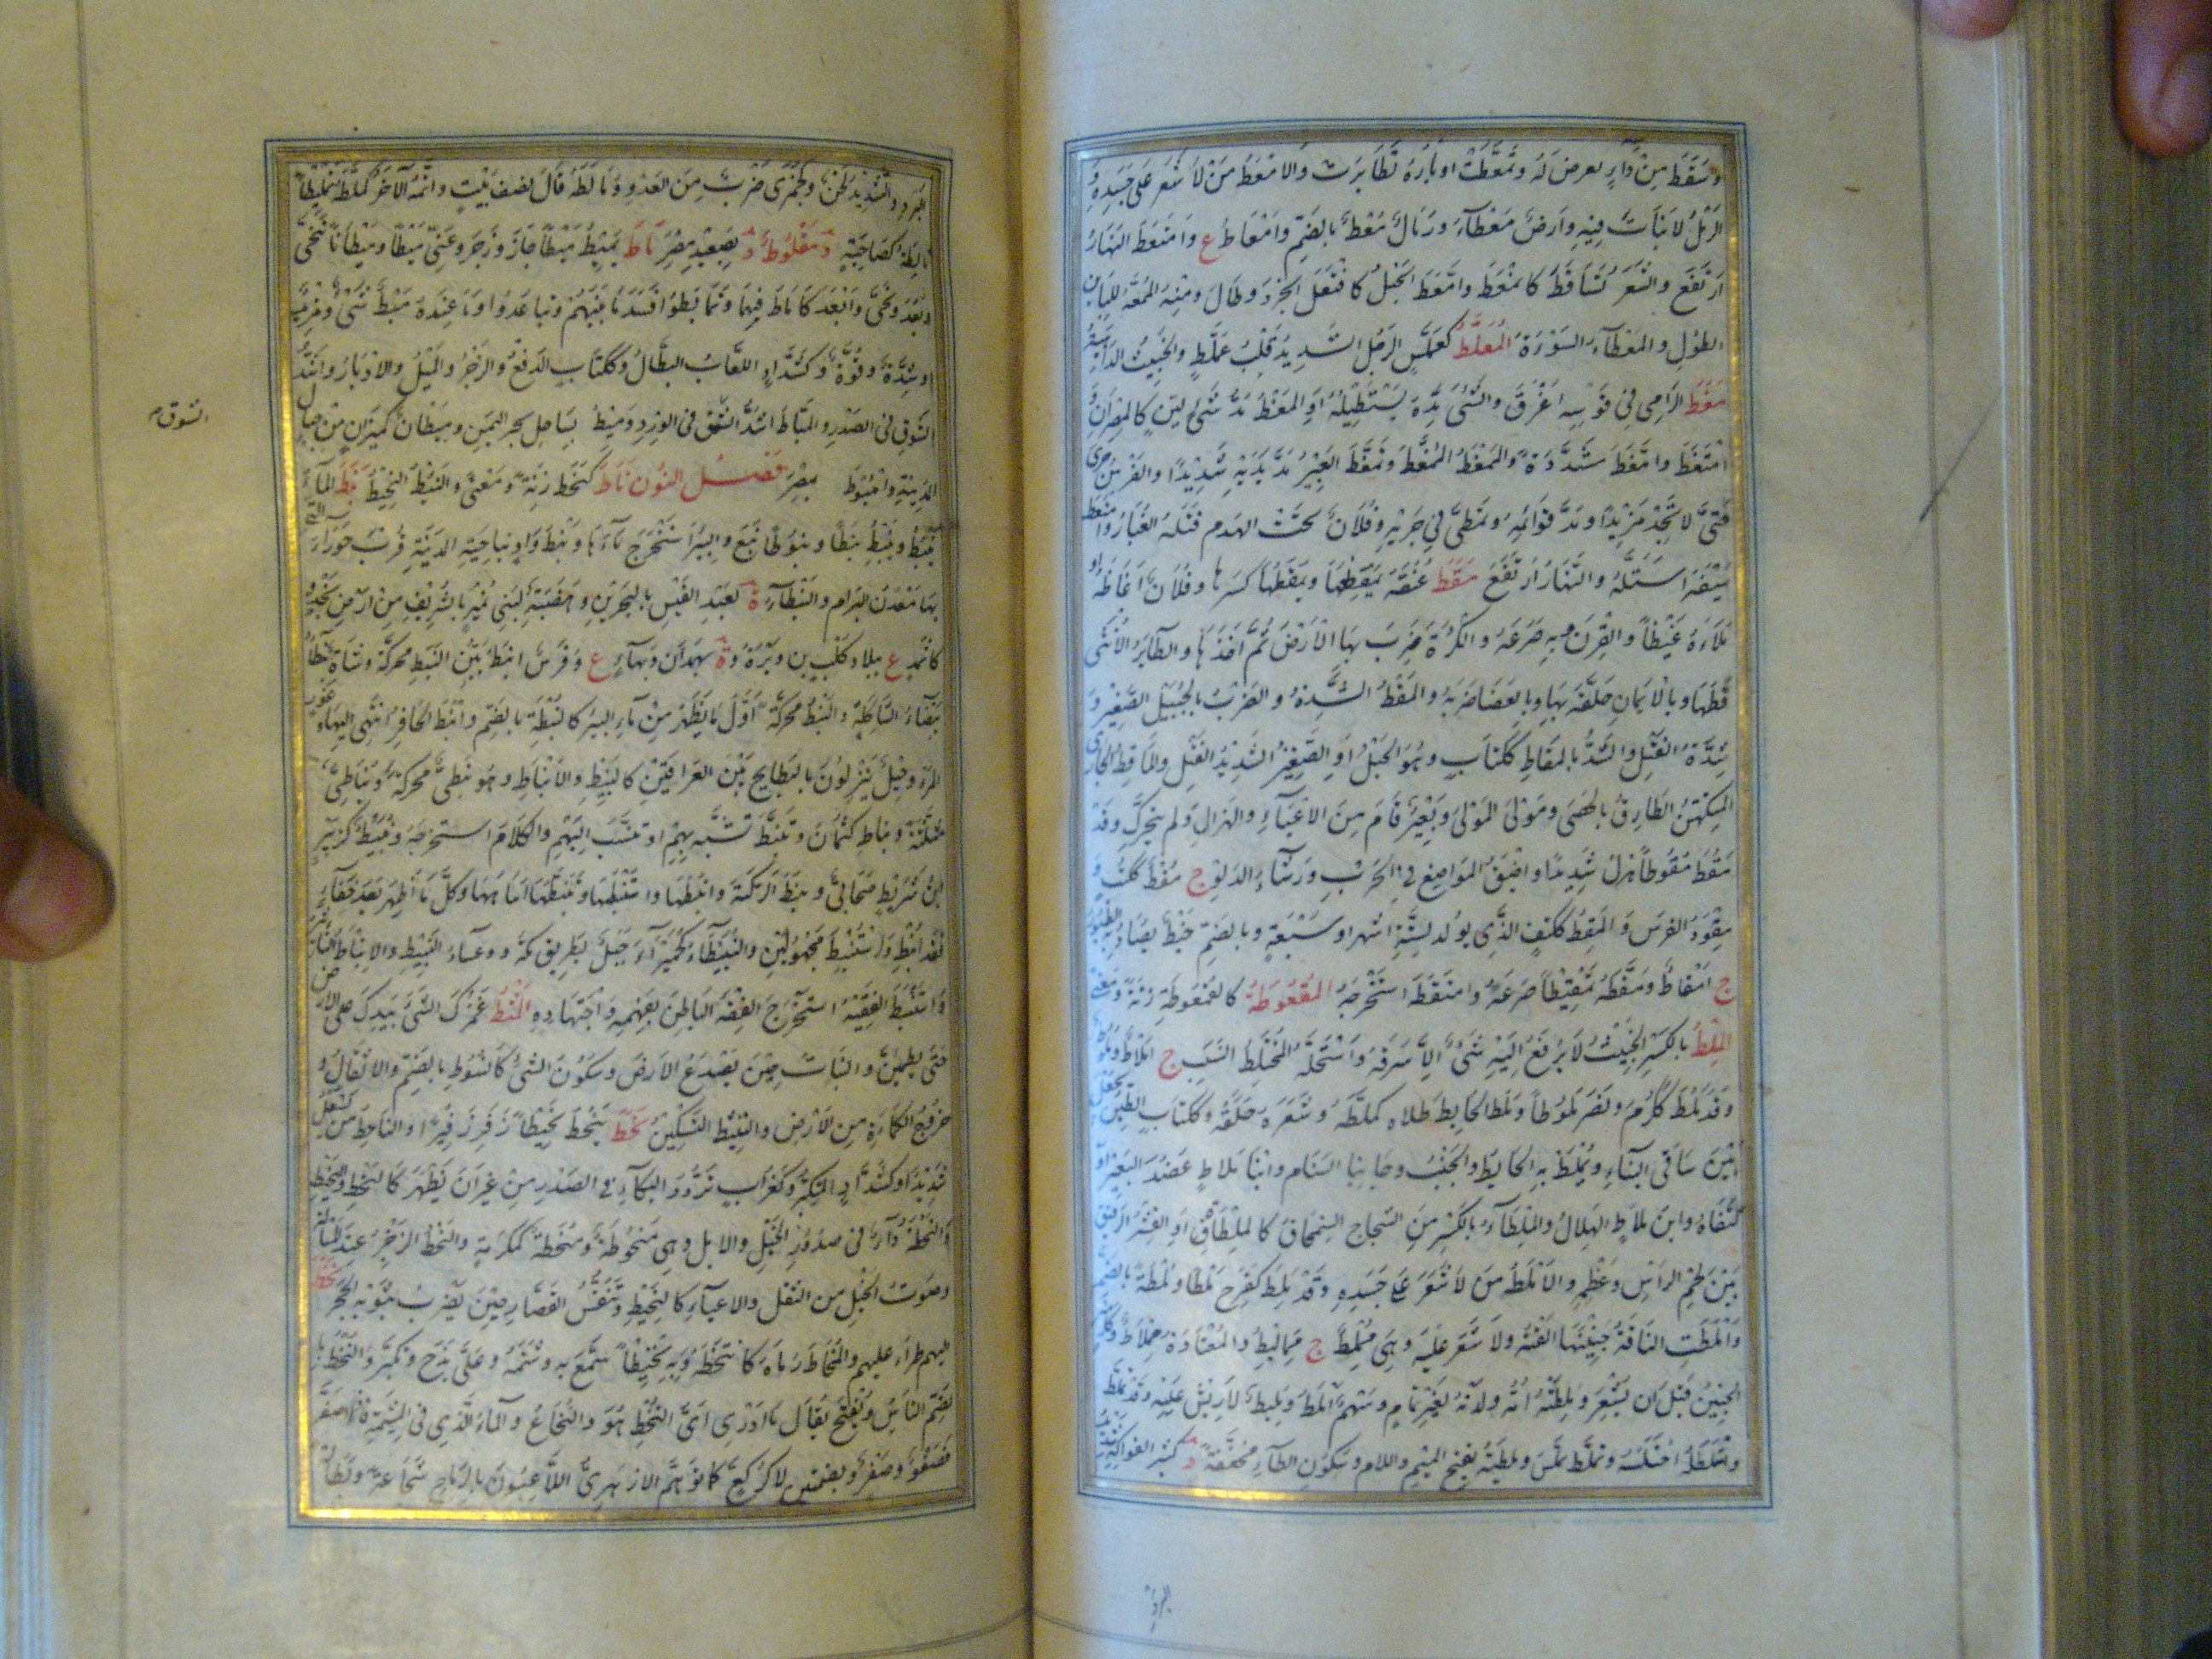 وسقط من داء يعرض له وتمعطت اوباره تطايرت والامعط من لا شعر على جسده و
الرمل لا نبات فيه وارض معطاء ورمال معط بالضم وامعاط ع وامتعط النهار
ارتفع والشعر تساقط كامعط وامعط الحبل كافتعل انجرد وطال ومنه الممعط للباين
الطول والمعطاء السوءة المعلط كعملس الرجل الشديد قلب عملط والخبيث الداهية
مغط الرامي في قوسه اغرق والشيء مده يستطيله او المغط مد شيء لين كالمصران و
امتغط وامغط مشددة والممغط الممعط وتمغط البعير مد يديه شديدا والفرس جرى
حتى لا تجد مزيدا ومد قوائمه وتمطى في جريه وفلان تحت الهدم قتله الغبار وامتغط
سيفه استله والنهار ارتفع مقط عنقه يمقطها ويمقطها كسرها وفلانا غاظه او
ملاءه غيظا والقرن وبه صرعه والكرة ضرب بها الارض ثم اخذها والطائر الانثى
قمطها وبالايمان حلفه بها وبالعصا ضربه والمقط الشدة والضرب بالحبيل الصغير و
شدة الفتل والشد بالمقاط ككتاب وهو الحبل او الصغير الشديد الفتل والماقط الحازي
المتكهن الطارق بالحصى ومولى المولى وبعير قام من الاعياء والهزال ولم يتحرك وقد
مقط مقوطا هزل شديدا واضيق المواضع في الحرب ورشاء الدلو ج مقط ككتب و
مقود الفرس والمقط ككتف الذي يولد لستة اشهر او سبعة وبالضم خيط يصاد به الطيور
ج امقاط ومقطه تمقيطا صرعه وامتقطه استخرجه المقعوطة كالقمعوطة زنة ومعنى
الملط بالكسر الخبيث لا يرفع اليه شيء الا سرقه واستحله والمختلط النسب ج املاط وملوط
وقد ملط ككرم ونصر ملوطا وملط الحايط طلاه كملطه وشعره حلقه وككتاب الطين يجعل
بين ساقي البناء ويملط به الحايط والجنب وجانبا السنام وابنا ملاط عضدا البعير او
كتفاه وابن ملاط الهلال والملطاء بالكسر من الشجاج السمحاق كالملطاة او القشر الرقيق
بين لحم الراس وعظمه والاملط من لا شعر على جسده وقد ملط كفرح ملطا وملطة بالضم
واملطت الناقة جنينها القته ولا شعر عليه وهي مملط ج مماليط والمعتادة مملاط وكامير
الجنين قبل ان يشعر وملطته امه ولدته لغير تمام وسهم املط ومليط لا ريش عليه وقد تملط
وامتلطه اختلسه وتملط تملس وملطية بفتح الميم واللام وسكون الطاء مخففة د كثير الفواكه
البرد والتشديد لحن وكجمزى ضرب من العدو ومالطه قال نصف بيت واتمه الاخر كملطه تمليطا
مالطة كصاحبة د مفلوط د بصعيد مصر ماط يميط ميطا جار وزجر وعني ميطا وميطانا تنحى
وبعد ونحى وابعد كاماط فيهما وتمايطوا فسد ما بينهم وتباعدوا وما عنده ميط شيء
او شدة وقوة وكشداد اللعاب البطال وككتاب الدفع والزجر والميل والادبار واشد
الشوق في الصدر والمياط اشد الشوق في الورد وميط بساحل بحر اليمن وميطان كميزان من جبال
المدينة وامبوط مصر فصل النون ناط كنحط زنة ومعنى والنئيط النحيط نبط الماء
ينبط وينبط نبطا ونبوطا نبع والبئر استخرج ماءها ونبط واد بناحية المدينة قرب حوراء التي
بها معدن البرام والنبطاء ة لعبد القيس بالبحرين وهضبة لبني نمير بالشريف من ارض نجد و
كاثمد ع ببلاد كلب بن وبرة و ة بهمدان وبهاء ع وفرس انبط بين النبط محركة وشاة نبطاء
بيضاء الشاكلة والنبط محركة اول ما يظهر من ماء البئر كالنبطة بالضم وانبط الحافر انتهى اليها وغور
المرء وجيل ينزلون بالبطايح بين العراقين كالنبيط والانباط وهو نبطي محركة ونباطي
مثلثة ونباط كثمان وتنبط تشبه بهم او تنسب اليهم والكلام استخرجه ونبيط كزبير
ابن شريط صحابي ونبط الركية وانبطها واستنبطها وتنبطها اماهها وكل ما اظهر بعد خفاء
فقد انبط واستنبط مجهولين والنبيطاء كحميراء جبل بطريق مكة ووعساء النبيط والانباط التاثير
واستنبط الفقيه استخرج الفقه الباطن بفهمه واجتهاده النثط غمزك الشيء بيدك على الارض
حتى يطمئن والنبات حين يصدع الارض وسكون الشيء كالنثوط بالضم والاثقال و
خروج الكماة من الارض والتنثيط التسكين نحط ينحط نحيطا زفر زفيرا والناحط من يسعل
شديدا وكشداد المتكبر وكغراب تردد البكاء في الصدر من غير ان يظهر كالنحط والنحيط
والنحطة داء في صدور الخيل والابل وهي منحوطة ومنحطة كمكرمة والنحط الزجر عند المسالة
وصوت الخيل من الثقل والاعياء كالنحيط وتنفس القصار حين يضرب بثوبه الحجر نخط
اليهم طرا عليهم والمخاط رماه كانتخطه وبه نخيطا سمع به وشتمه وعلي بذخ وتكبر والنخط
بضم الناس ويفتح يقال ما ادري اي النخط هو والنخاع والماء الذي في المشيمة فاذا اصفر
فصفق وصفر وبضمتين لا كركع كما توهم الازهري اللاعبون بالرماح شجاعة وبطالة
الشوق م